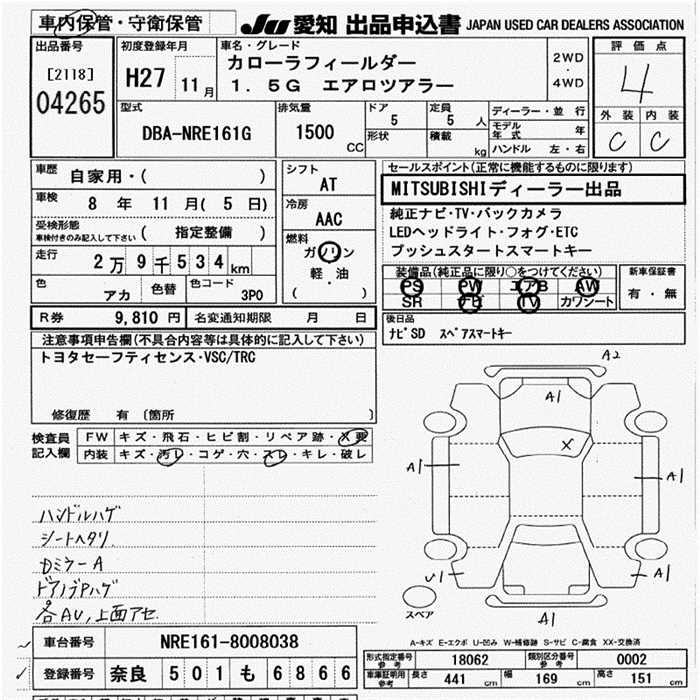 車内保管・守衛保管 JU 愛知 出品申込書 JAPAN USED CAR DEALERS ASSOCIATION
出品番号 初度登録年月 車名・グレード 評価点
[2118] H27 11月 カローラフィールダー 2WD・4WD 4
04265 1.5G エアロツアラー
型式 排気量 ドア 定員 ディーラー・並行 外装 内装
DBA-NRE161G 1500 CC 5 5人 モデル年式 年 C C
形状 積載 kg ハンドル 左・右
車歴 自家用・( ) シフト AT セールスポイント(正常に機能するものに限ります)
車検 8年 11月( 5日) 冷房 AAC MITSUBISHIディーラー出品
受検形態 車検付きのみ記入して下さい ( 指定整備 ) 燃料 ガソリン 軽・油 ( )
純正ナビ・TV・バックカメラ
LEDヘッドライト・フォグ・ETC
プッシュスタートスマートキー
走行 2万9千534km
色 アカ 色替 色コード 3P0
装備品(純正品に限り○をつけてください) 新車保証書
PS PW エアB AW 有・無
SR ナビ TV カワシート
R券 9,810円 名変通知期限 月 日 後日品
ナビSD スペアスマートキー
注意事項申告欄(不具合内容等は具体的に記入して下さい)
トヨタセーフティセンス・VSC/TRC
修復歴 有 [箇所 ]
検査員記入欄 FW キズ・飛石・ヒビ割・リペア跡・X要
内装 キズ・汚レ・コゲ・穴・スレ・キレ・破レ
ハンドルハゲ
シートヘタリ
DミラーA
ドアノブPハゲ
各AU,上面アセ.
A2
A1
X
A1 A1
U1 A1
スペア A1
A-キズ E-エクボ U-凹み W-補修跡 S-サビ C-腐食 XX-交換済
車台番号 NRE161-8008038
登録番号 奈良 501 も 6866
形式指定番号 参考 18062 類別区分番号 参考 0002
車庫証明用 参考 長さ 441cm 幅 169cm 高さ 151cm